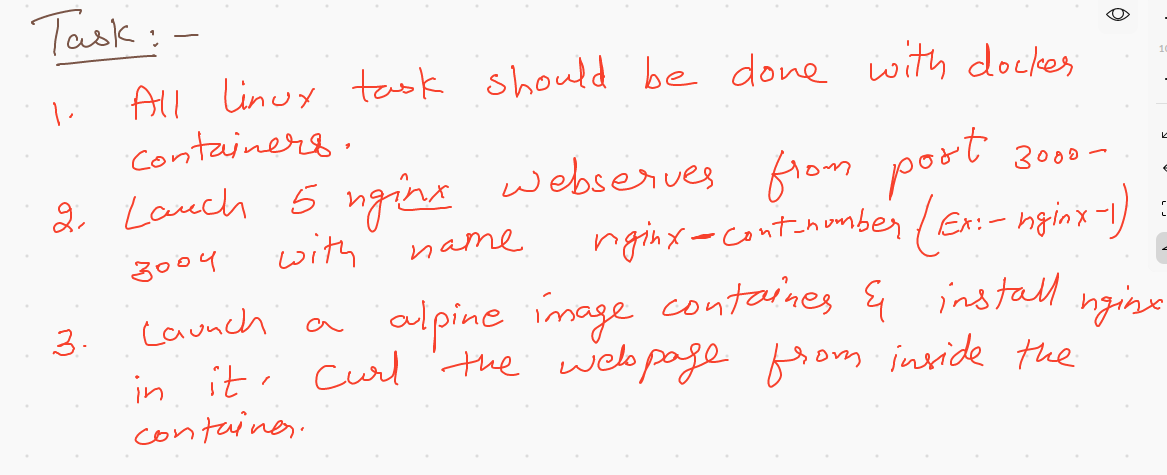 Task :-
1. All linux task should be done with docker
containers.
2. Lauch 5 nginx webserves from port 3000-
3004 with name nginx-cont-number (Ex:- nginx-1)
3. Launch a alpine image container & install nginx
in it. Curl the webpage from inside the
container.